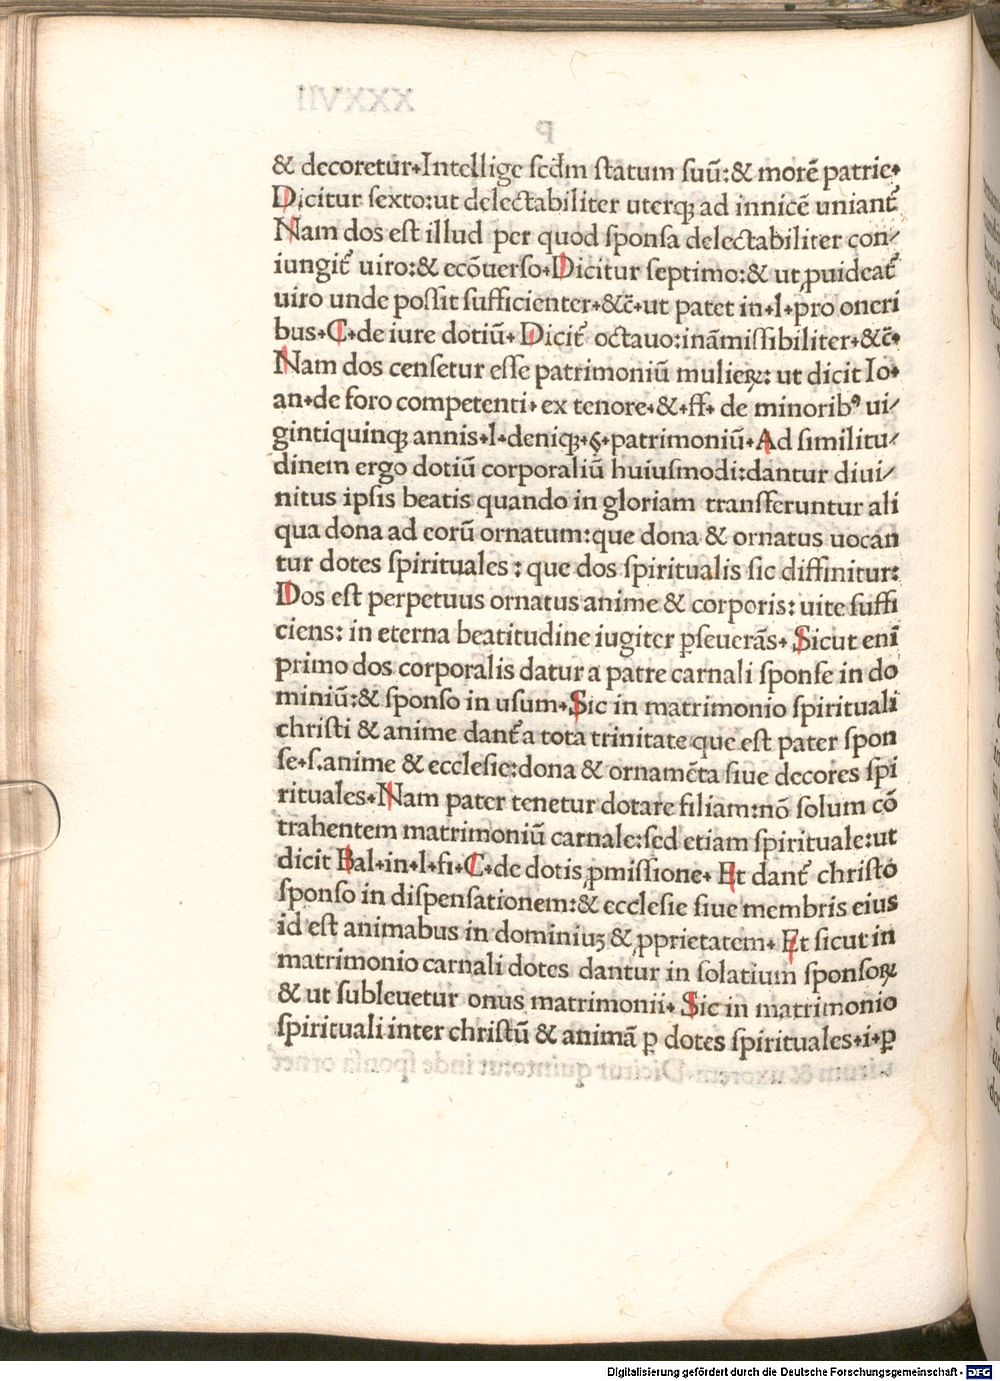 & decoretur.Intellige scđm statum suū:& morē patrie.
Dicitur sexto:ut delectabiliter uterqꝫ ad innicē uniant᷑
Nam dos est illud per quod sponsa delectabiliter con/
iungit᷑ uiro:& ecōuerso.Dicitur septimo:& ut ꝓuideat᷑
uiro unde possit sufficienter.&c̄.ut patet in.l.pro oneri
bus.C.de iure dotiū. Dicit᷑ octauo:ināmissibiliter.&c̄.
Nam dos censetur esse patrimoniū mulieꝝ: ut dicit Io.
an.de foro competenti. ex tenore.&.ff. de minoribꝰ ui/
gintiquinqꝫ annis.l.deniqꝫ.§.patrimoniū.Ad similitu/
dinem ergo dotiū corporaliū huiusmodi:dantur diui/
nitus ipsis beatis quando in gloriam transferuntur ali
qua dona ad eorū ornatum:que dona & ornatus uocan
tur dotes spirituales : que dos spiritualis sic diffinitur:
Dos est perpetuus ornatus anime & corporis: uite suffi
ciens: in eterna beatitudine iugiter ꝑseuerās. Sicut enī
primo dos corporalis datur a patre carnali sponse in do
miniū:& sponso in usum.Sic in matrimonio spirituali
christi & anime dant᷑ a tota trinitate que est pater spon
se.s.anime & ecclesie:dona & ornamēta siue decores spi
rituales.Nam pater tenetur dotare filiam:nō solum cō
trahentem matrimoniū carnale:sed etiam spirituale:ut
dicit Bal.in.l.fi.C.de dotis ꝓmissione. Et dant᷑ christo
sponso in dispensationem:& ecclesie siue membris eius
id est animabus in dominiuꝫ & ꝓprietatem. Et sicut in
matrimonio carnali dotes dantur in solatium sponsoꝝ
& ut subleuetur onus matrimonii. Sic in matrimonio
spirituali inter christū & animā ꝑ dotes spirituales.i.ꝑ
Digitalisierung gefördert durch die Deutsche Forschungsgemeinschaft - DFG